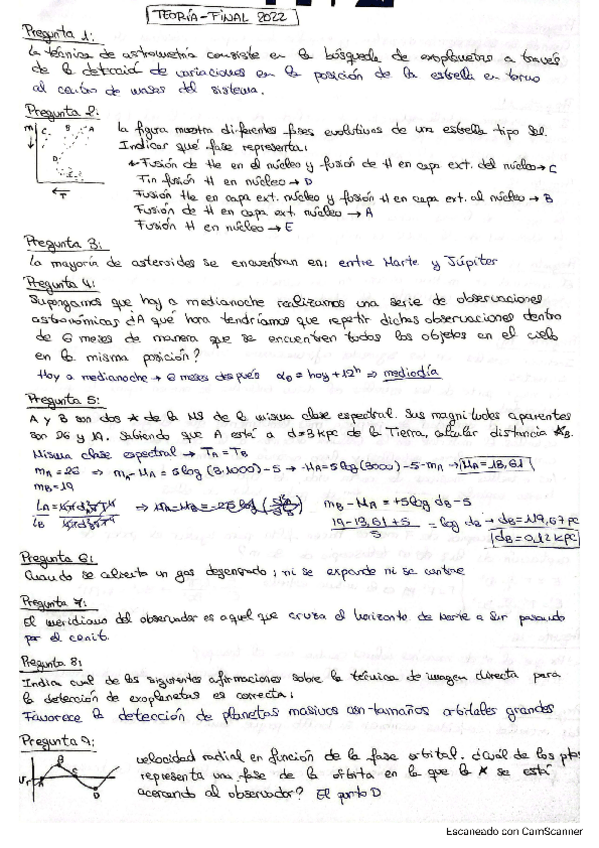 TEORÍA-FINAL 2022
Pregunta 1:
La técnica de astrometría consiste en la búsqueda de exoplanetas a través
de la detección de variaciones en la posición de la estrella en torno
al centro de masas del sistema.
Pregunta 2:
m C B A D E T
La figura muestra diferentes fases evolutivas de una estrella tipo Sol.
Indicar qué fase representa:
Fusión de He en el núcleo y fusión de H en capa ext. del núcleo → C
Fin fusión H en núcleo → D
Fusión He en capa ext. núcleo y fusión H en capa ext. al núcleo → B
Fusión de H en capa ext. núcleo → A
Fusión H en núcleo → E
Pregunta 3:
La mayoría de asteroides se encuentran en: entre Marte y Júpiter
Pregunta 4:
Supongamos que hoy a medianoche realizamos una serie de observaciones
astronómicas ¿A qué hora tendríamos que repetir dichas observaciones dentro
de 6 meses de manera que se encuentren todos los objetos en el cielo
en la misma posición?
Hoy a medianoche → 6 meses después α₀ = hoy + 12ʰ ⇒ mediodía
Pregunta 5:
A y B son dos * de la MS de la misma clase espectral. Sus magnitudes aparentes
son 26 y 19. Sabiendo que A está a d=3kpc de la Tierra, calcular distancia *B.
Misma clase espectral → TA = TB
mA = 26 ⇒ mA - MA = 5 log (3·1000) - 5 → -MA = 5 log (3000) - 5 - mA → MA = 13,61
mB = 19
LA = LB
mB - MA = +5 log dB - 5
19-13,61+5 / 5 = log dB → dB = 119,67 pc
dB = 0,12 kpc
Pregunta 6:
Cuando se calienta un gas degenerado: ni se expande ni se contrae
Pregunta 7:
El meridiano del observador es aquel que cruza el horizonte de Norte a Sur pasando
por el cenit.
Pregunta 8:
Indica cual de las siguientes afirmaciones sobre la técnica de imagen directa para
la detección de exoplanetas es correcta:
Favorece la detección de planetas masivos con tamaños orbitales grandes
Pregunta 9:
Vr A B C D
velocidad radial en función de la fase orbital. ¿Cuál de los ptos
representa una fase de la órbita en la que la * se está
acercando al observador? El punto D
Escaneado con CamScanner